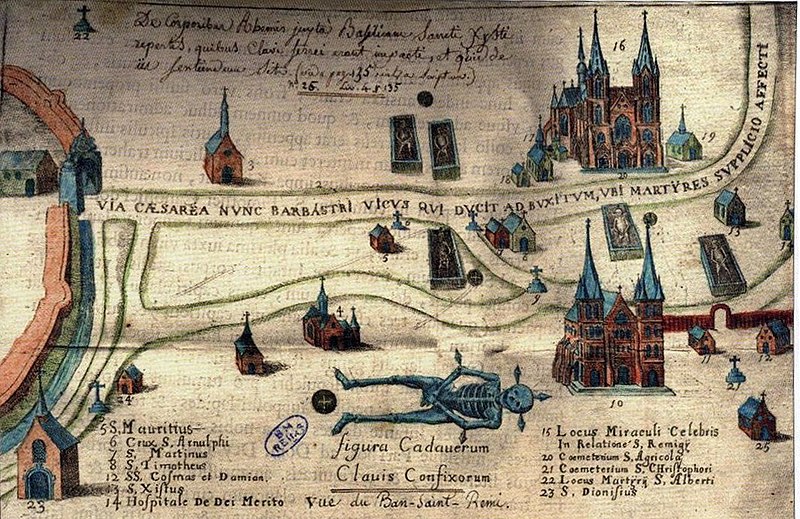 De Corporibus Ahemis juxta Basilicam Sancti Xysti
repertis, quibus Clavi ferrei erant impacti, et quid de
iis sentiendum sit. (vide pag. 135
N° 26. 135
16
19
17
18
20
3
2
VIA CÆSARËA NUNC BARBÂSTRI VICUS QUI DUCIT AD BUXITUM, UBI MARTŸRES SUPPLICIO AFFECTI
22
13
5
6
7
8
9
4
10
11
12
21
24
25
BM
REIMS
5 S. Mauritius
6 Crux S. Arnulphi
7 S. Martinus
8 S. Timotheus
12 SS. Cosmas et Damian.
13 S. Xistus
14 Hospitale De Dei Merito
23
figura Cadaverum
Clavis Confixorum
Vue du Ban-Saint-Remi.
15 Locus Miraculi Celebris
In Relatione S. Remigÿ
20 Coemeterium S. Agricola
21 Coemeterium S. CHristophori
22 Locus Martÿrÿ S. Alberti
23 S. Dionisius